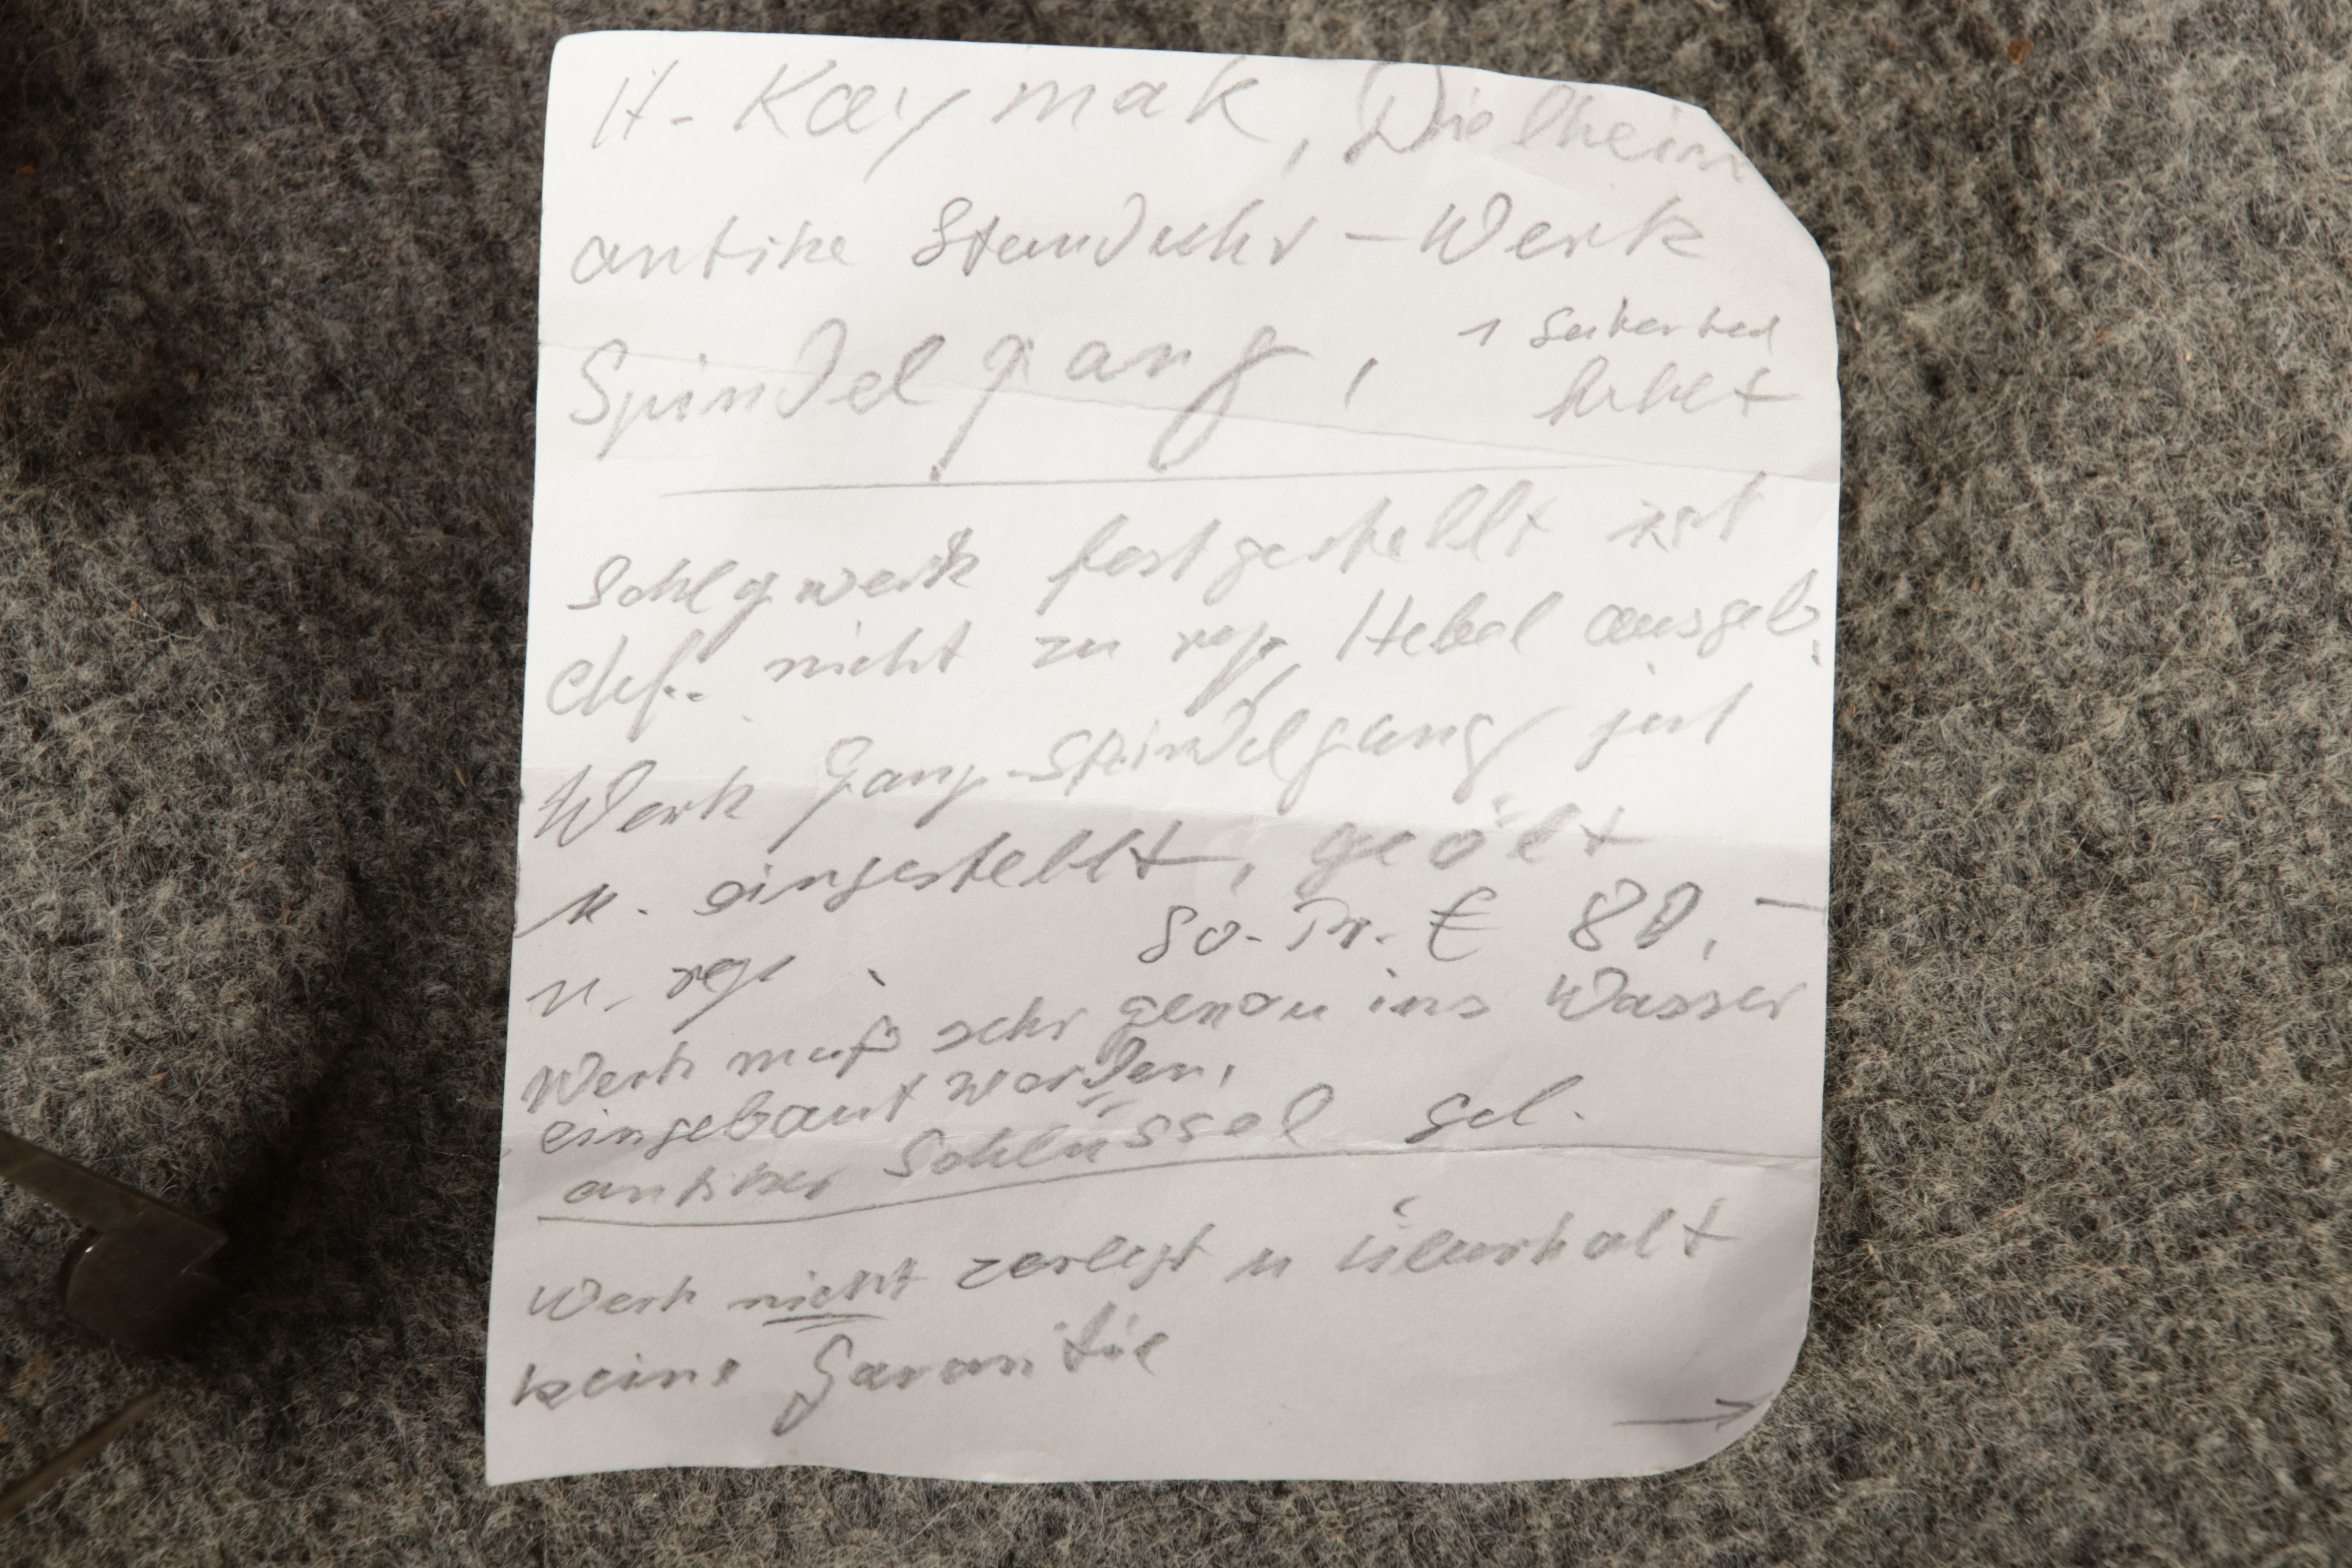 H. Kaymak, Dielheim
antike Standuhr - Werk
Spindelgang,
1
fehlt
Schlagwerk festgestellt ist
def.. nicht zu rep, Hebel ausgeb.
Werk Gang-Spindelgang
u. eingestellt, geölt
u. rep
So.-Pr. € 80,-
Werk muß sehr genau ins Wasser
eingebaut werden,
antiker Schlüssel gel.
Werk nicht zerlegt u überholt
keine Garantie
→